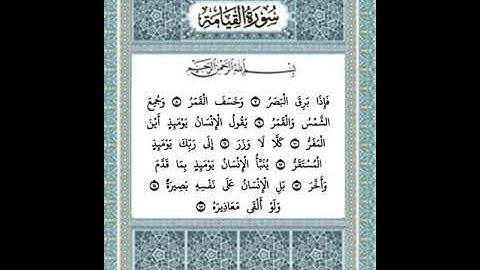 سُورَةُ القِيَامَة
بِسْمِ اللهِ الرَّحْمَنِ الرَّحِيمِ
فَإِذَا بَرِقَ الْبَصَرُ ۝٧ وَخَسَفَ الْقَمَرُ ۝٨ وَجُمِعَ
الشَّمْسُ وَالْقَمَرُ ۝٩ يَقُولُ الْإِنْسَانُ يَوْمَئِذٍ أَيْنَ
الْمَفَرُّ ۝١٠ كَلَّا لَا وَزَرَ ۝١١ إِلَى رَبِّكَ يَوْمَئِذٍ
الْمُسْتَقَرُّ ۝١٢ يُنَبَّأُ الْإِنْسَانُ يَوْمَئِذٍ بِمَا قَدَّمَ
وَأَخَّرَ ۝١٣ بَلِ الْإِنْسَانُ عَلَى نَفْسِهِ بَصِيرَةٌ ۝١٤
وَلَوْ أَلْقَى مَعَاذِيرَهُ ۝١٥